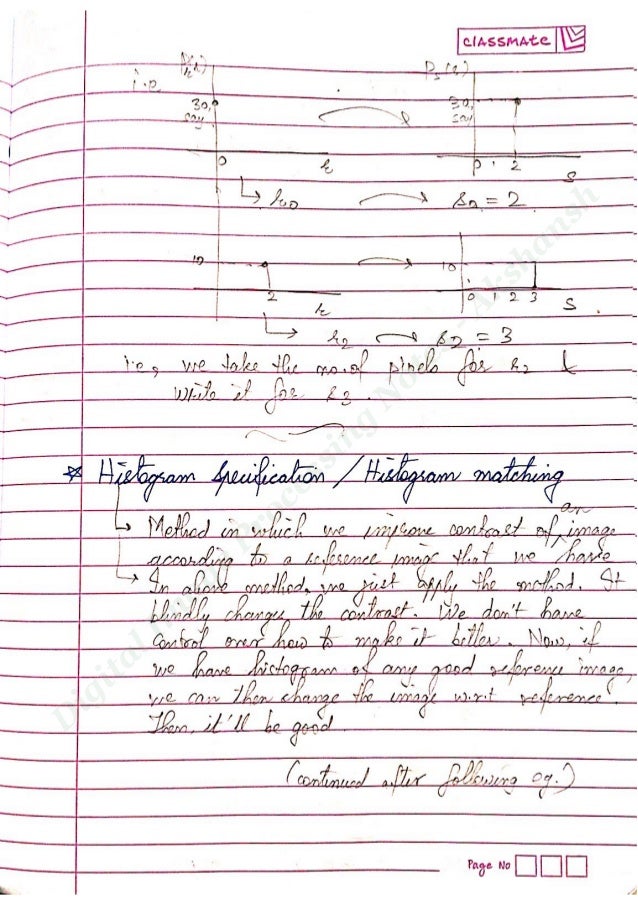 classmate
i.e
Pr(r)
Ps(s)
30, say
30, say
0
r
0 1 2
S
r0
s0 = 2
10
10
2
r
0 1 2 3
S
r2
s2 = 3
i.e, we take the no. of pixels for r2 &
write it for s3.
* Histogram Specification / Histogram matching
an
↳ Method in which we improve contrast of ^ image
according to a reference image that we have
↳ In above method, we just apply the method. It
blindly changes the contrast. We don't have
control over how to make it better. Now, if
we have histogram of any good reference image,
we can then change the image w.r.t reference.
Then, it'll be good.
(continued after following eg.)
Digital
Processing Notes - Akshansh
Page No